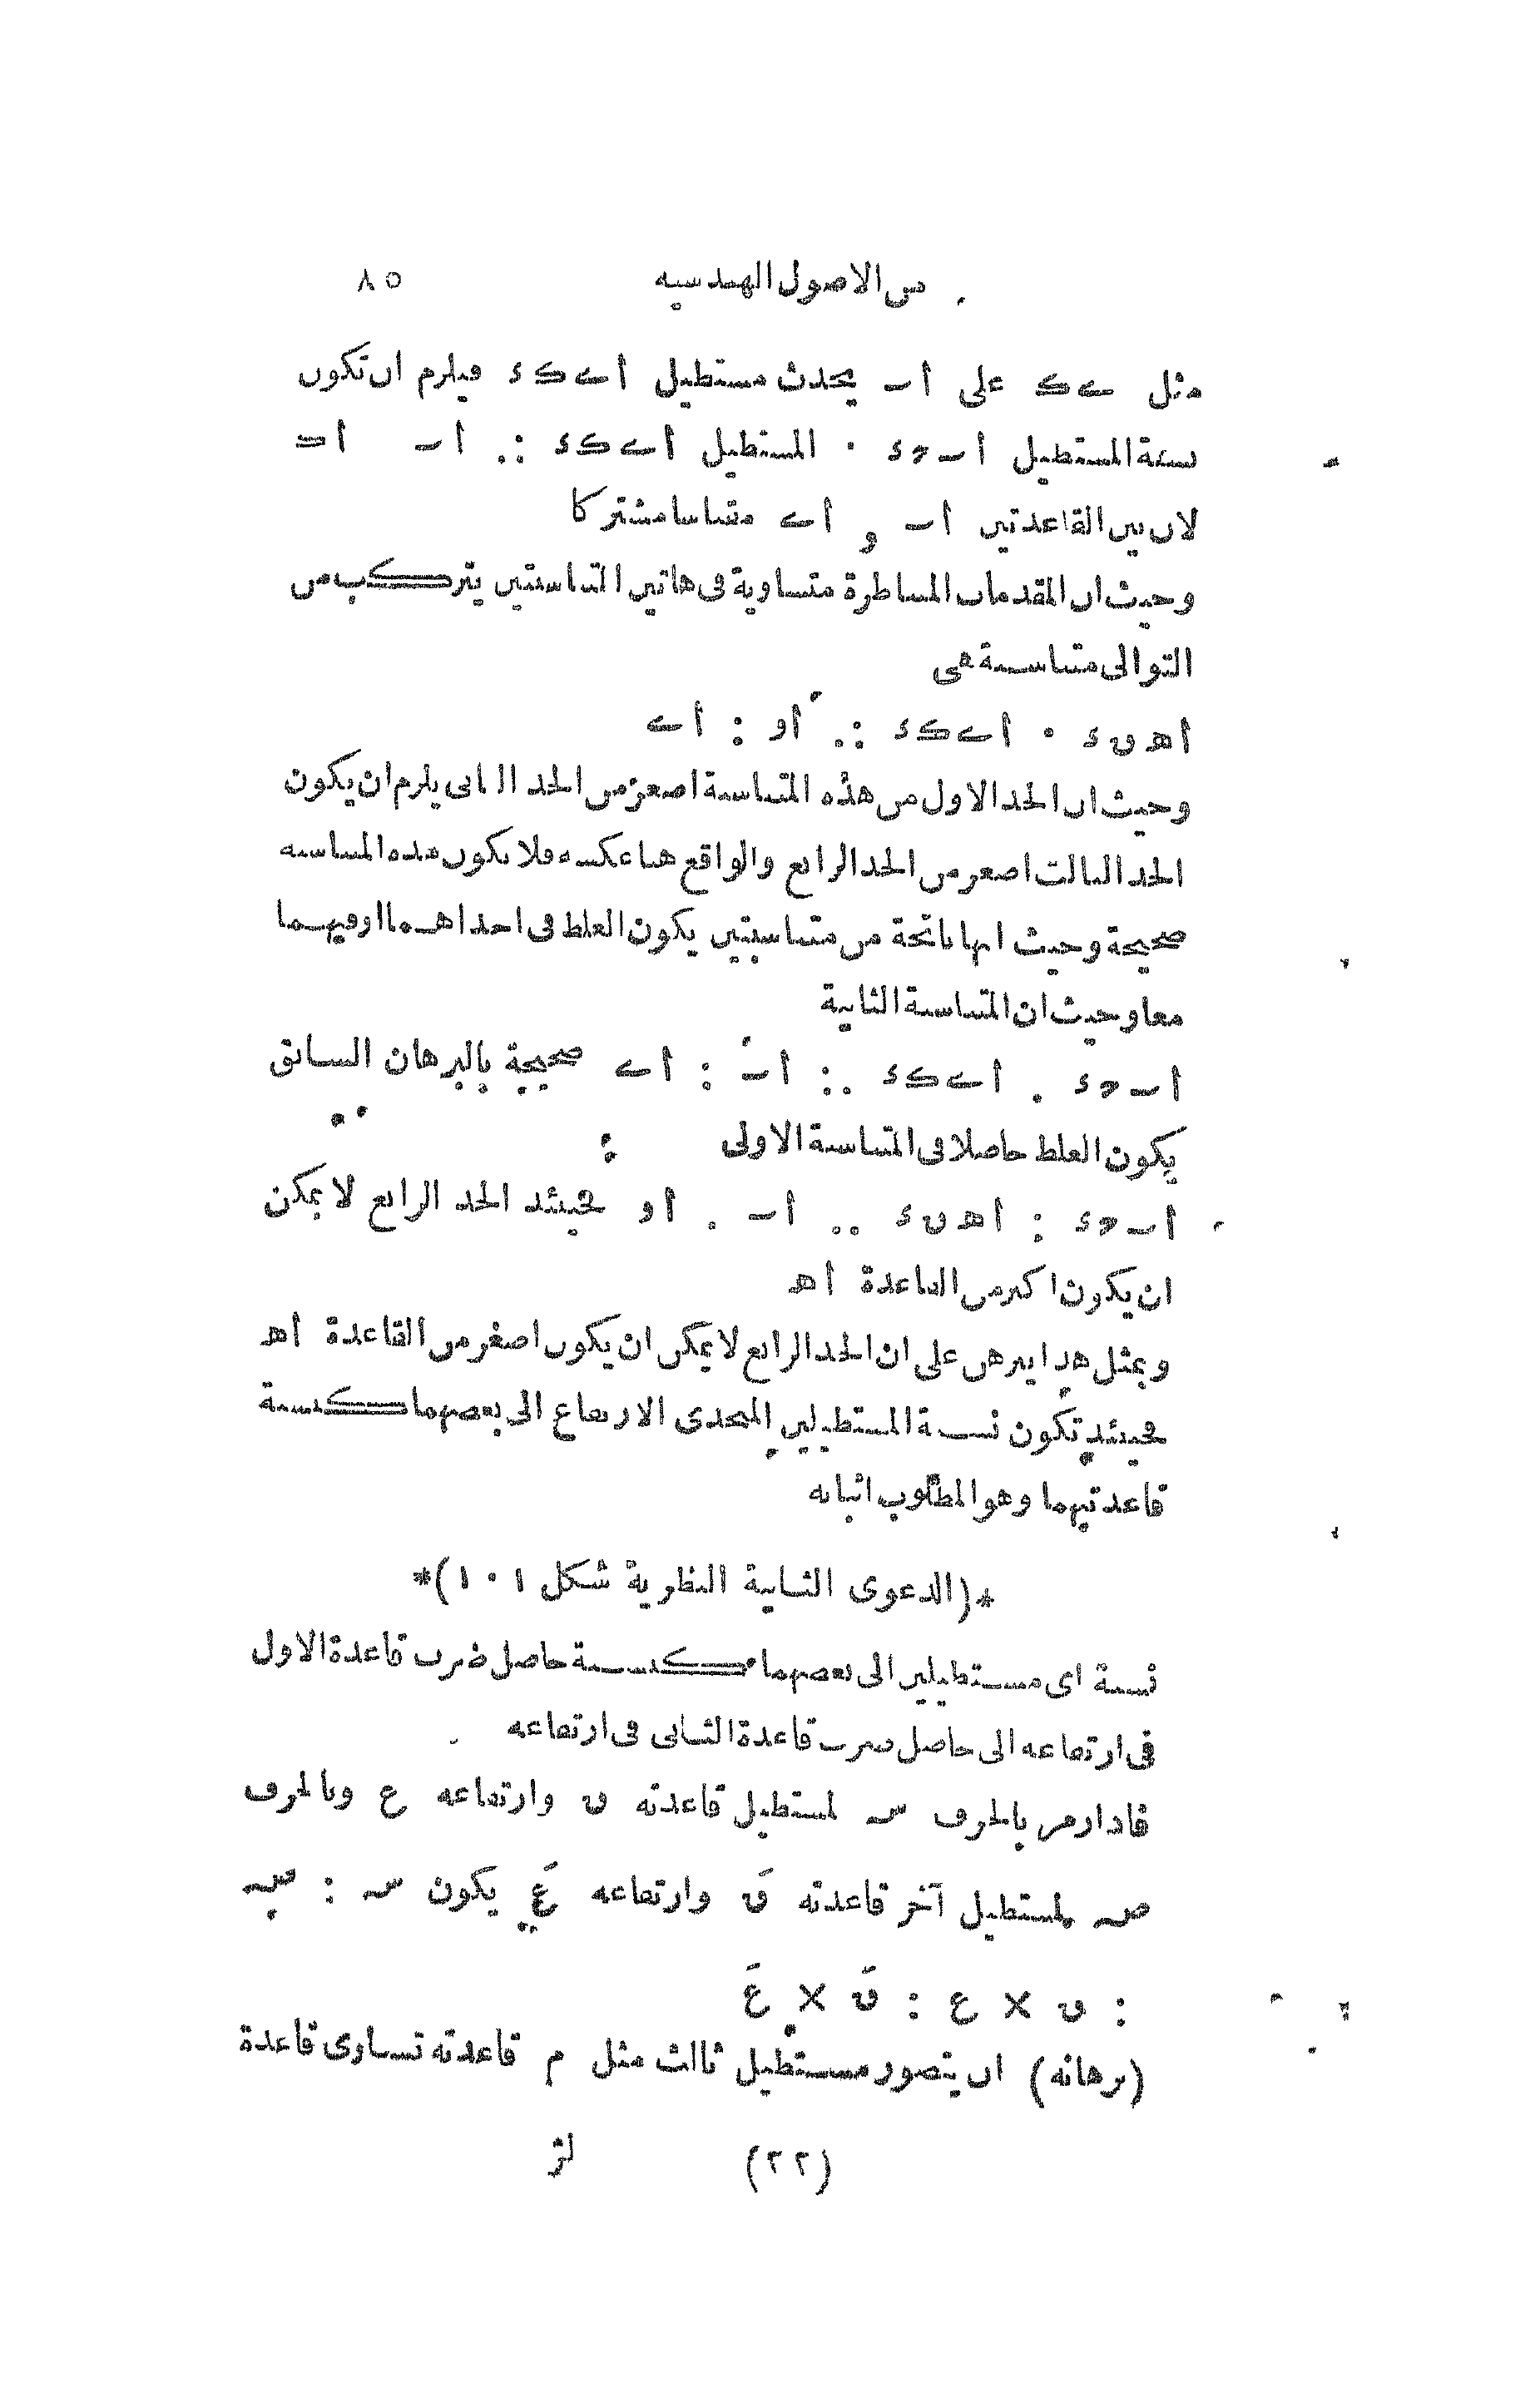 من الاصول الهندسيه ٨٥
مثل ىك على اب يحدث مستطيل اىكء فيلزم ان تكون
نسبة المستطيل ابحء : المستطيل اىكء :: اب : اى
لان بين القاعدتين اب و اى متناسبا مشتركا
وحيث ان المقدمات المساطرة متساوية فى هاتين المتناسبتين يتركب من
التوالى متناسبة هى
اهںء : اىكء :: او : اى
وحيث ان الحد الاول من هذه المتناسبة اصغر من الحد الثانى يلزم ان يكون
الحد الثالث اصغر من الحد الرابع والواقع هنا عكسه فلا تكون هذه المتناسبه
صحيحة وحيث انها ناتجة من متناسبتين يكون الغلط فى احداهما او فيهما
معا وحيث ان المتناسبة الثانية
ابحء : اىكء :: اب : اى صحيحة بالبرهان السابق
يكون الغلط حاصلا فى المتناسبة الاولى
ابحء : اهںء :: اب : او فحينئذ الحد الرابع لا يمكن
ان يكون اكبر من القاعدة اه
وبمثل هذا يبرهن على ان الحد الرابع لا يمكن ان يكون اصغر من القاعدة اه
فحينئذ تكون نسبة المستطيلين المتحدى الارتفاع الى بعضهما كنسبة
قاعدتيهما وهو المطلوب اثباته
*(الدعوى الثانية النظرية شكل ١٠١)*
نسبة اى مستطيلين الى بعضهما كنسبة حاصل ضرب قاعدة الاول
فى ارتفاعه الى حاصل ضرب قاعدة الثانى فى ارتفاعه
فاذا رمز بالحرف سـ لمستطيل قاعدته ق وارتفاعه ع وبالحرف
صـ لمستطيل آخر قاعدته قَ وارتفاعه عَ يكون سـ : صـ
: ق × ع : قَ × عَ
(برهانه) ان يتصور مستطيل ثالث مثل م قاعدته تساوى قاعدة
(٢٢) لژ